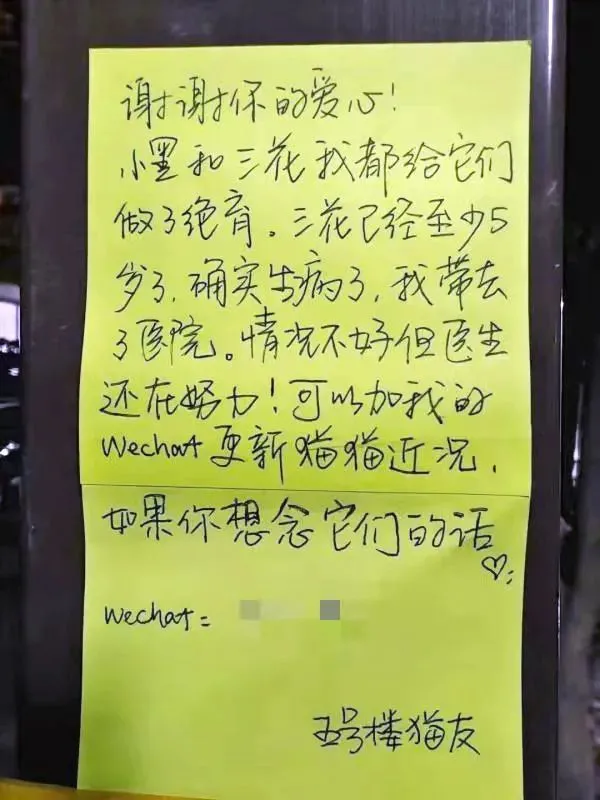 谢谢你的爱心！
小黑和三花我都给它们
做了绝育。三花已经至少5
岁了，确实生病了，我带去
了医院。情况不好但医生
还在努力！可以加我的
Wechat更新猫猫近况，
如果你想念它们的话
♡：
Wechat=
五号楼猫友